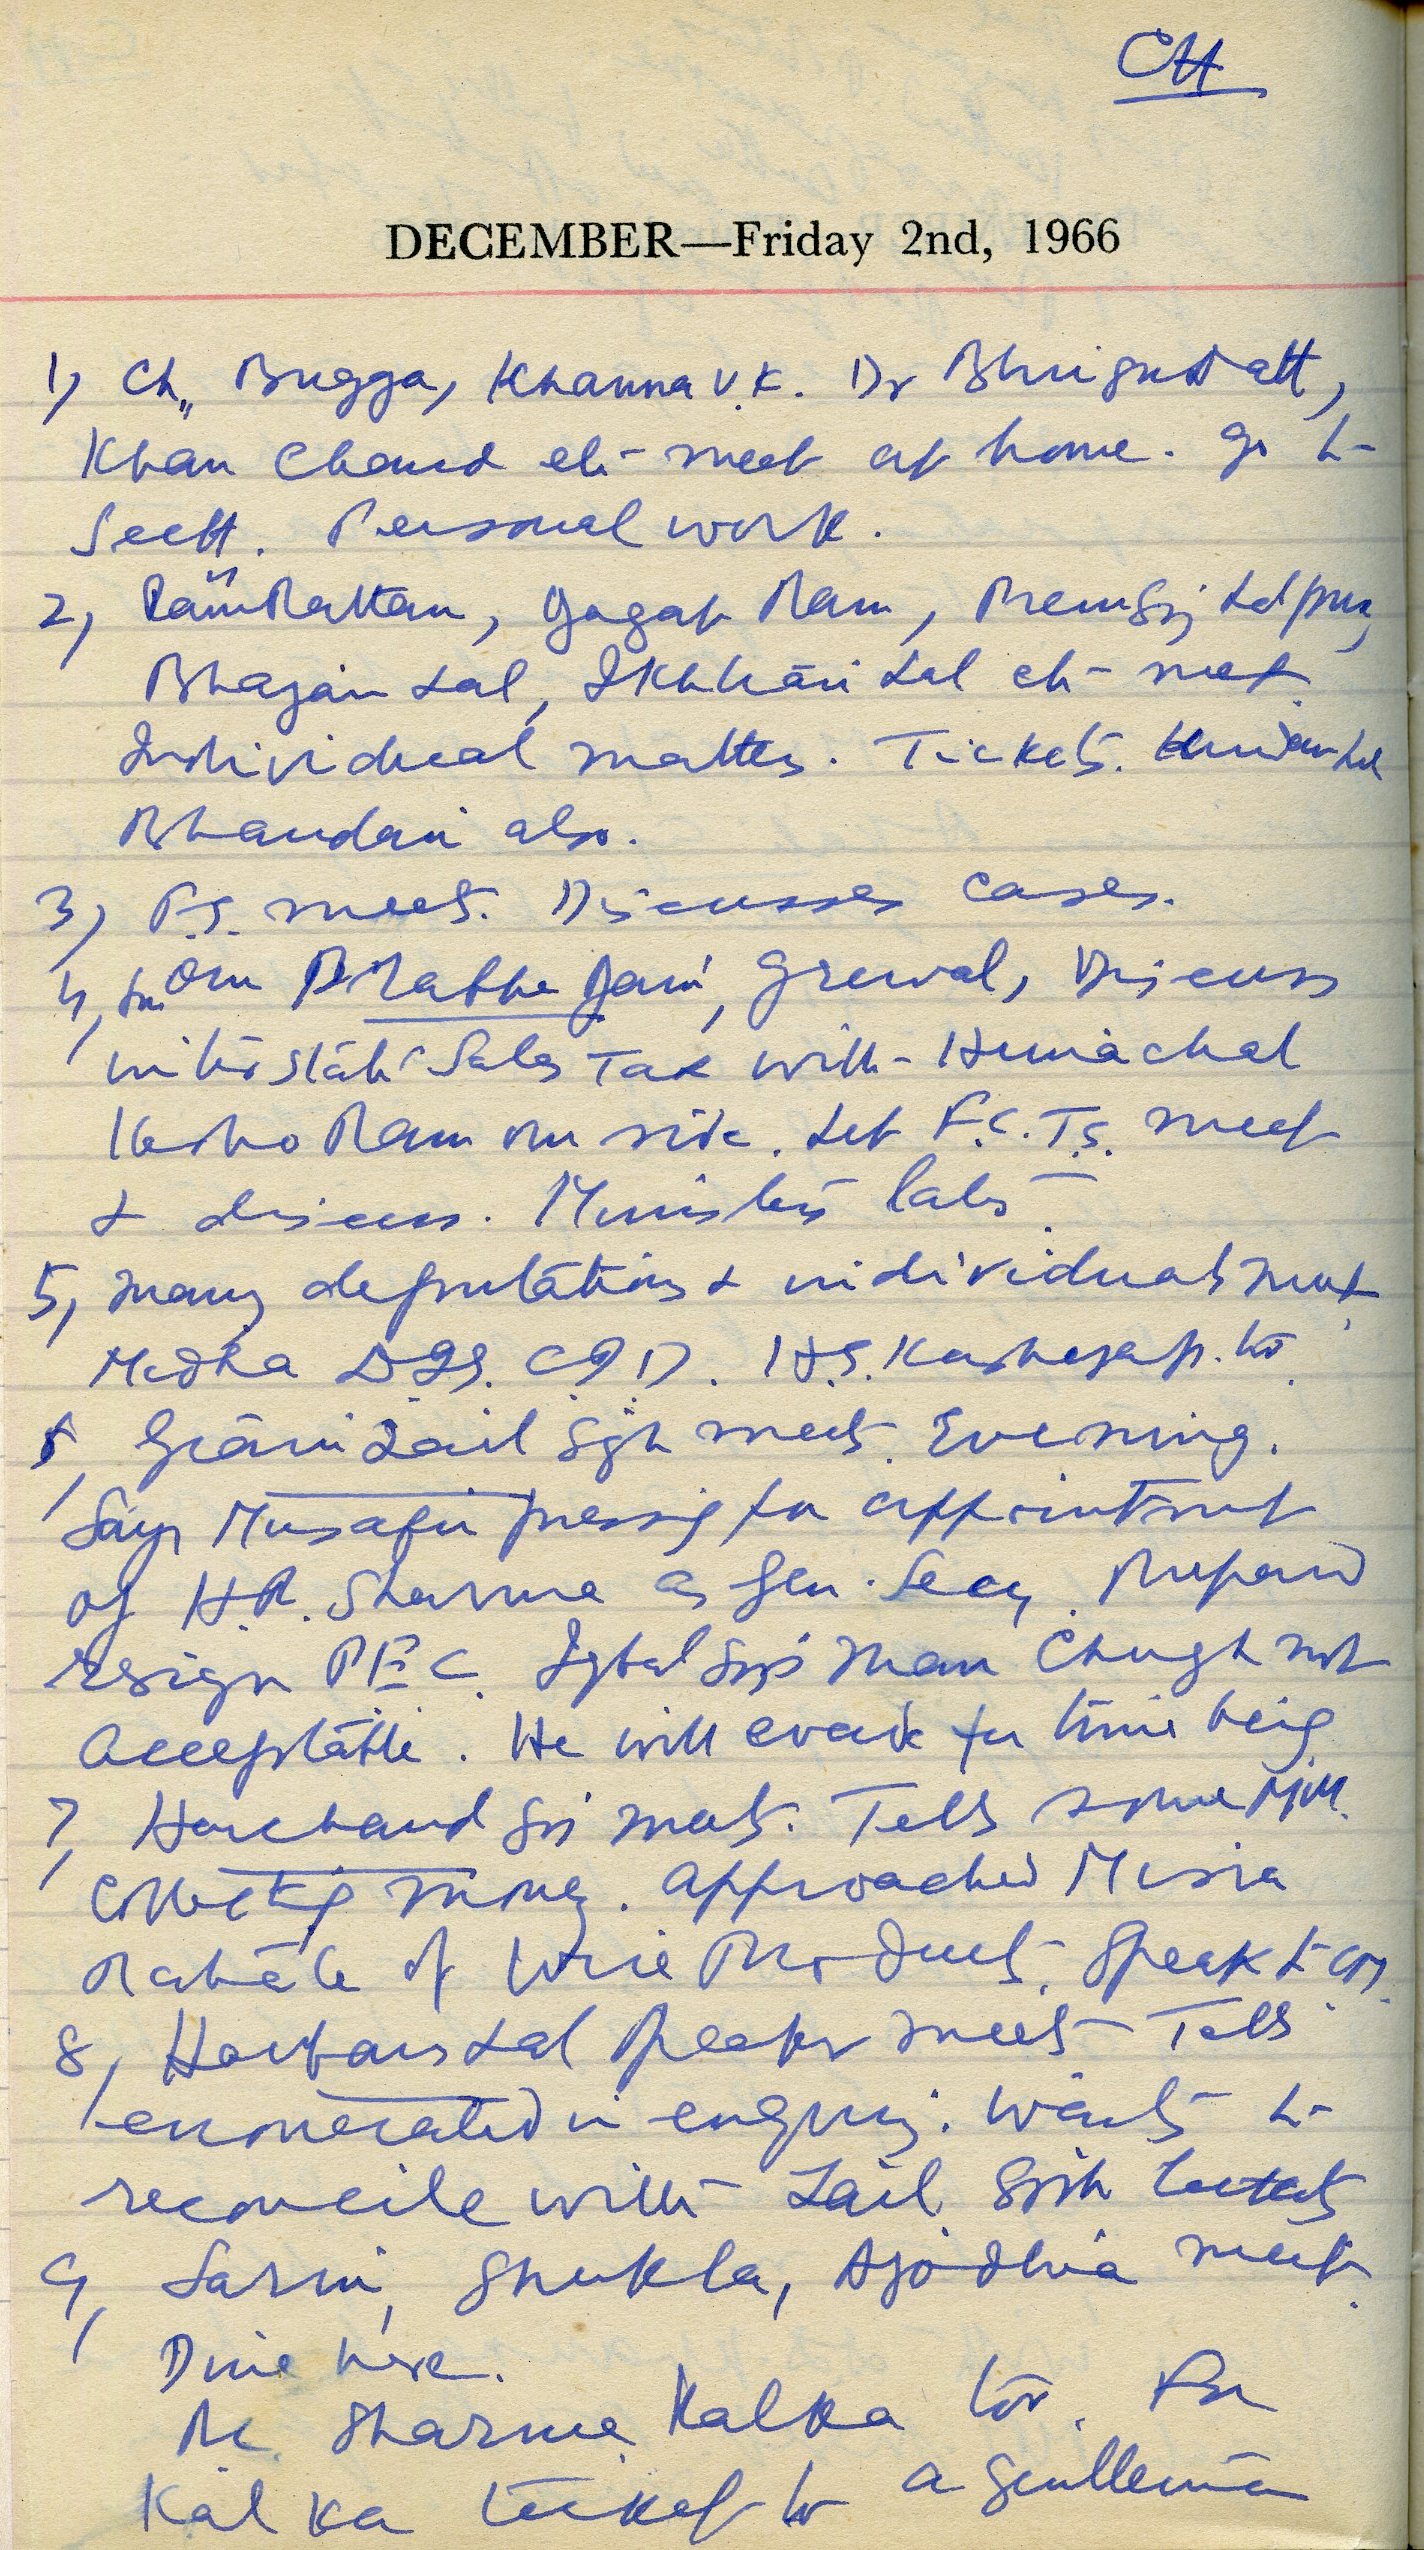 CH
DECEMBER—Friday 2nd, 1966
1) Ch,, Bugga, Khanna V.K. Dr Bhrigu Datt,
Khan Chand etc meet at home. go to
Sectt. Personal work.
2) Ram Rattan, Jagat Ram, Prem Sgj
Bhajan Lal, etc meet.
Individual matters. Tickets.
Bhandari also.
3) P.S. meets. Discusses cases.
4, Om Prabha Jain, Grewal, Discuss
inter State Sales Tax with Himachal
Kesho Ram on side. Let F.C.T.S. meet
& discuss. Ministers later.
5, Many deputations & individuals meet,
Medha D.I.G. C.I.D. H.S. Kashyap. too.
6, Giani Zail Sgh meets. Evening.
Says Musafir pressing for appointment
of H.R. Sharma as Gen. Secy. Prepared
resign PEC. Iqbal Sgj Man Chugh not
acceptable. He will evade for time being
7, Harchand Sgj meets. Tells some
Collecting money. Approached Misra
Rebate of Wire Products. Speak to CM.
8, Harbans Lal meets Tells
exonerated in enquiry. Wants to
reconcile with Zail Sgh
9, Sarin, Shukla, Ajodhia meet.
Dine here.
Sharma Kalka too. For
Kalka ticket to a gentleman